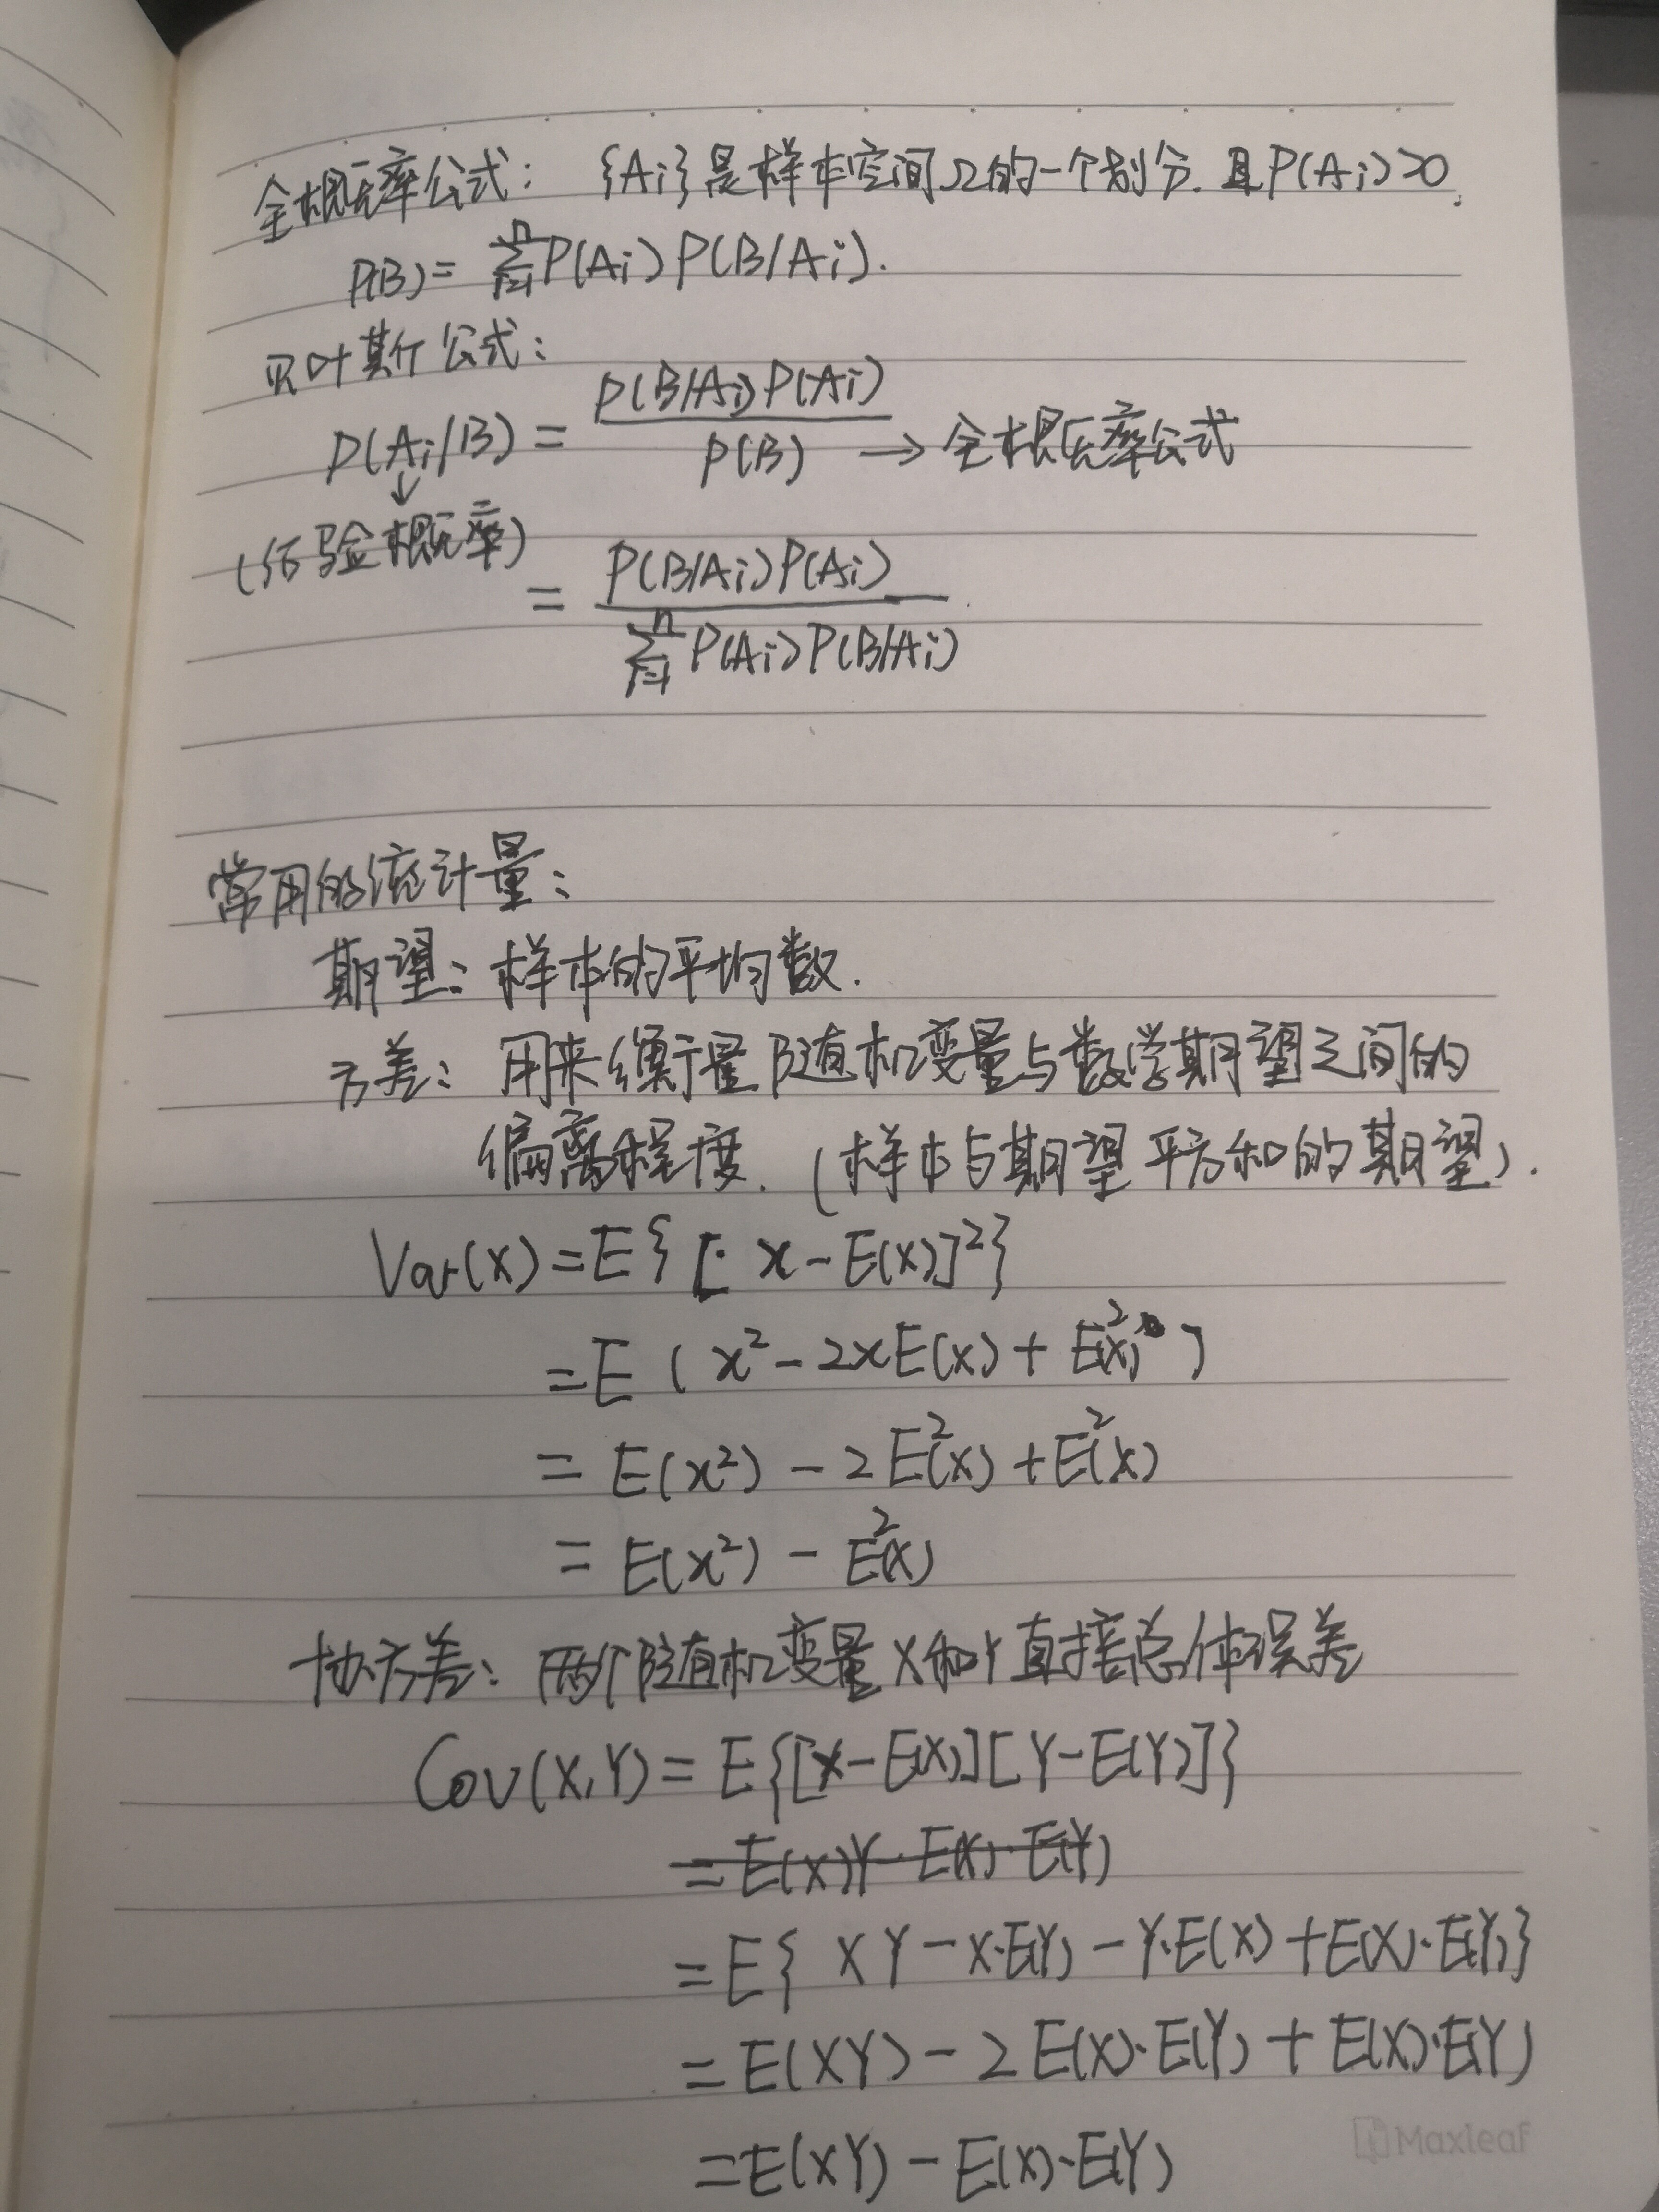 全概率公式： {Ai}是样本空间Ω的一个划分. 且P(Ai)>0.
P(B)= ∑ⁿᵢ₌₁P(Ai)P(B/Ai).
贝叶斯公式：
P(Ai/B) = P(B/Ai)P(Ai) / P(B) → 全概率公式
↓
(后验概率)
= P(B/Ai)P(Ai) / ∑ⁿᵢ₌₁P(Ai)P(B/Ai)
常用的统计量：
期望：样本的平均数.
方差：用来衡量随机变量与数学期望之间的
偏离程度. (样本与期望平方和的期望).
Var(X) = E{[x-E(X)]²}
= E(x²-2xE(X)+E²(X))
= E(x²) - 2E²(X) + E²(X)
= E(x²) - E²(X)
协方差：两个随机变量X和Y直接总体误差
Cov(X,Y) = E{[X-E(X)][Y-E(Y)]}
= E(X)Y-E(X)·E(Y)
= E{XY-X·E(Y)-Y·E(X)+E(X)·E(Y)}
= E(XY)-2E(X)·E(Y)+E(X)·E(Y)
= E(XY)-E(X)·E(Y)
Maxleaf